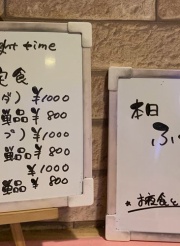 ght time
定食
ダ) ¥1000
単品 ¥800
ブ) ¥1000
単品 ¥800
¥1000
単品 ¥800
本日
ふ
★お夜食と